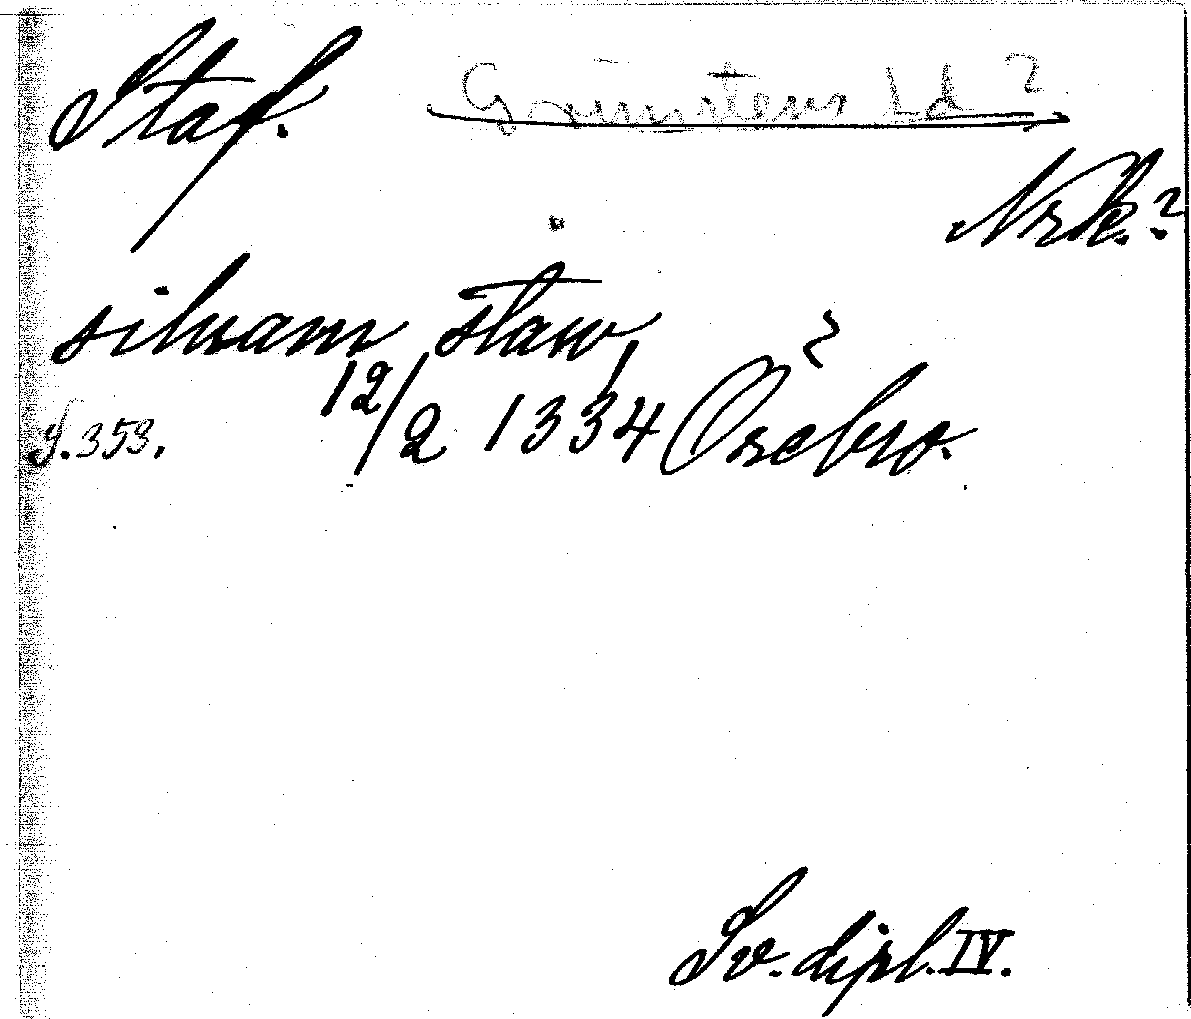 Staf. Grimstens hd ?
Nrk.?
silvam staw,
s. 353. 12/2 1334 Örebro.
Sv. dipl. IV.